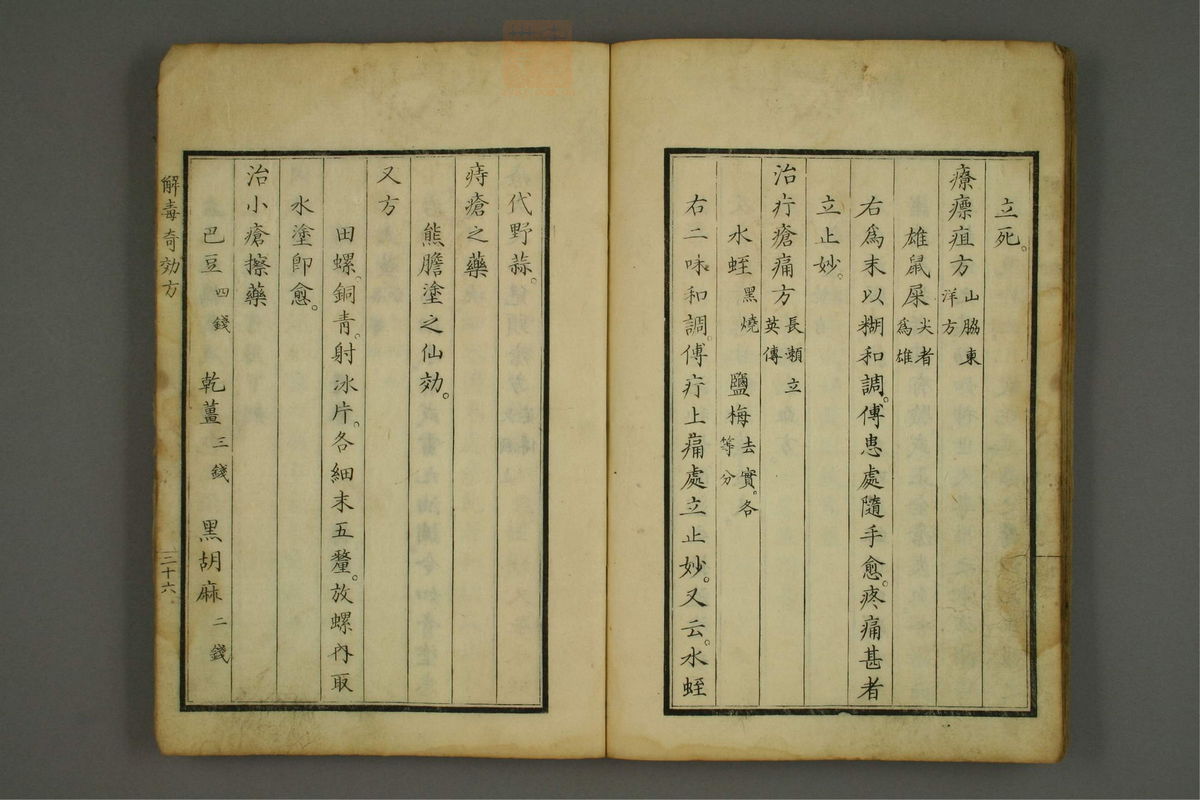 立死。
療瘭疽方山脇東洋方
雄鼠屎尖者為雄
右爲末以糊和調。傅患處隨手愈。疼痛甚者
立止妙。
治疔瘡痛方長瀬立英傳
水蛭黑燒 鹽梅去實。各等分
右二味和調。傅疔上痛處立止妙。又云。水蛭
代野蒜。
痔瘡之藥
熊膽塗之仙効。
又方
田螺。銅青。射冰片。各細末五釐。放螺內取
水塗卽愈。
治小瘡擦藥
巴豆四錢 乾薑三錢 黑胡麻二錢
解毒奇効方
三十六